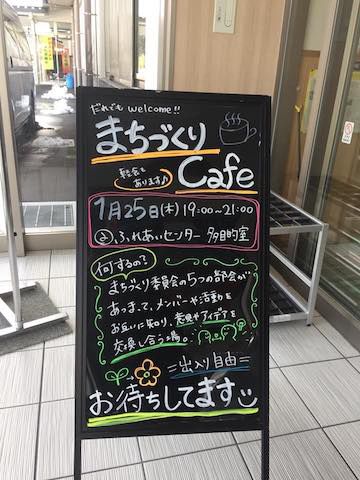 だれでも welcome!!
まちづくり
Cafe
軽食も
あります♪
1月25日(木)19:00~21:00
ふれあいセンター 多目的室
何するの?
まちづくり委員会の5つの部会が
あつまって、メンバーや活動を
お互いに知り、意見やアイデアを
交換し合う場。
=出入り自由=
お待ちしてます